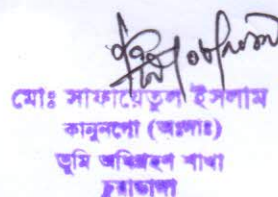 মোঃ সাফায়েতুল ইসলাম
কানুনগো (অঃদাঃ)
ভূমি অধিগ্রহণ শাখা
চুয়াডাঙ্গা